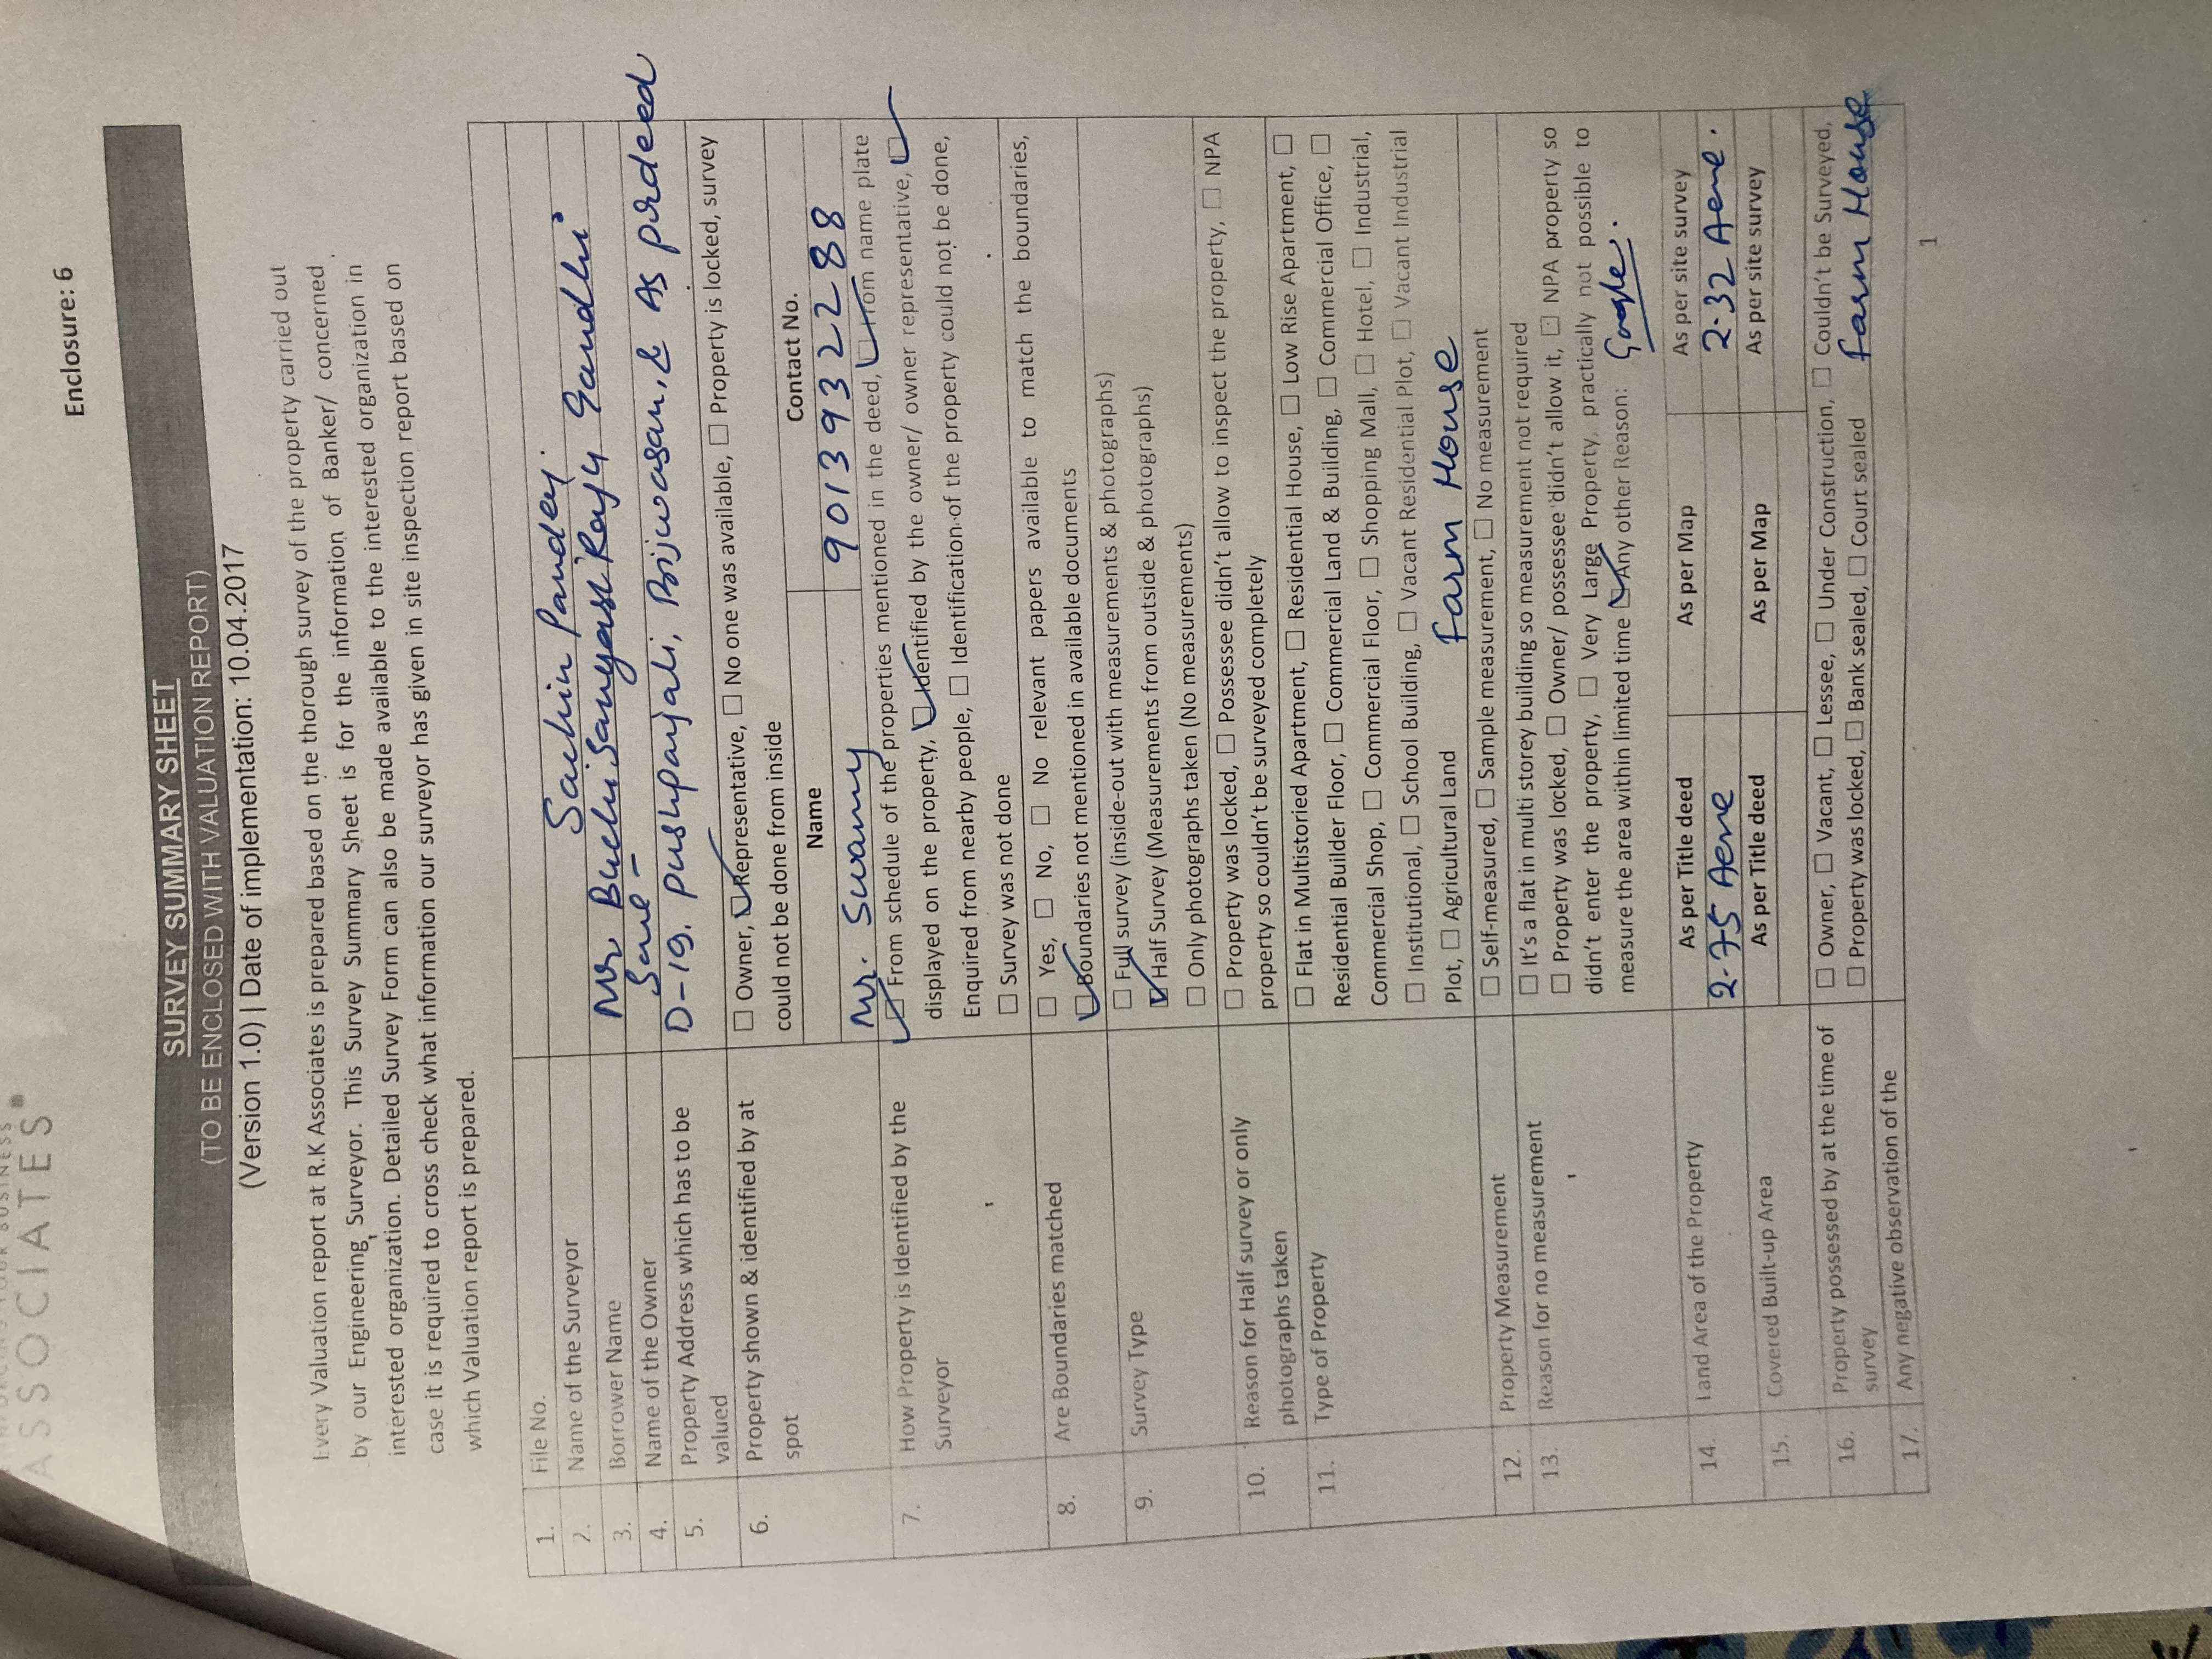 ASSOCIATES
Enclosure: 6
SURVEY SUMMARY SHEET
(TO BE ENCLOSED WITH VALUATION REPORT)
(Version 1.0) | Date of implementation: 10.04.2017
Every Valuation report at R.K Associates is prepared based on the thorough survey of the property carried out
by our Engineering Surveyor. This Survey Summary Sheet is for the information of Banker/ concerned
interested organization. Detailed Survey Form can also be made available to the interested organization in
case it is required to cross check what information our surveyor has given in site inspection report based on
which Valuation report is prepared.
1. File No.
2. Name of the Surveyor Sachin Pandey.
3. Borrower Name Mr Buchi Sanyasi Raju Gandhi
4. Name of the Owner Same -
5. Property Address which has to be D-19. Pushpanjali, Bijwasan, & As pr deed
valued
6. Property shown & identified by at ☐ Owner, ☑ Representative, ☐ No one was available, ☐ Property is locked, survey
spot could not be done from inside
Name Contact No.
Mr. Swamy 9013932288
7. How Property is Identified by the ☑ From schedule of the properties mentioned in the deed, ☑ From name plate
Surveyor displayed on the property, ☑ Identified by the owner/ owner representative, ☑
Enquired from nearby people, ☐ Identification of the property could not be done,
☐ Survey was not done
8. Are Boundaries matched ☐ Yes, ☐ No, ☐ No relevant papers available to match the boundaries,
☑ Boundaries not mentioned in available documents
9. Survey Type ☐ Full survey (inside-out with measurements & photographs)
☑ Half Survey (Measurements from outside & photographs)
☐ Only photographs taken (No measurements)
10. Reason for Half survey or only ☐ Property was locked, ☐ Possessee didn't allow to inspect the property, ☐ NPA
photographs taken property so couldn't be surveyed completely
11. Type of Property ☐ Flat in Multistoried Apartment, ☐ Residential House, ☐ Low Rise Apartment, ☐
Residential Builder Floor, ☐ Commercial Land & Building, ☐ Commercial Office, ☐
Commercial Shop, ☐ Commercial Floor, ☐ Shopping Mall, ☐ Hotel, ☐ Industrial,
☐ Institutional, ☐ School Building, ☐ Vacant Residential Plot, ☐ Vacant Industrial
Plot, ☐ Agricultural Land Farm House
12. Property Measurement ☐ Self-measured, ☐ Sample measurement, ☐ No measurement
13. Reason for no measurement ☐ It's a flat in multi storey building so measurement not required
☐ Property was locked, ☐ Owner/ possessee didn't allow it, ☐ NPA property so
didn't enter the property, ☐ Very Large Property, practically not possible to
measure the area within limited time ☑ Any other Reason: Google.
14. Land Area of the Property As per Title deed As per Map As per site survey
2.75 Acre 2.32 Acre.
15. Covered Built-up Area As per Title deed As per Map As per site survey
16. Property possessed by at the time of ☐ Owner, ☐ Vacant, ☐ Lessee, ☐ Under Construction, ☐ Couldn't be Surveyed,
survey ☐ Property was locked, ☐ Bank sealed, ☐ Court sealed Farm House
17. Any negative observation of the
1